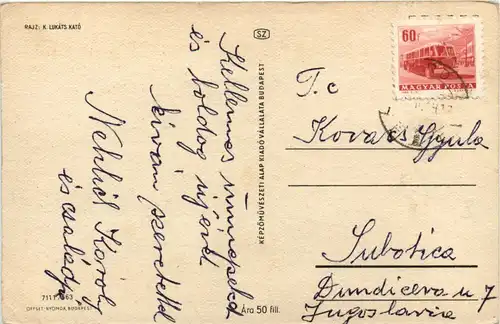 RAJZ: K. LUKÁTS KATÓ
Kellemes ünnepeket
és boldog újévet
kíván szeretettel
Károly
és családja
7111 63
OFFSET-NYOMDA, BUDAPEST
SZ
KÉPZŐMŰVÉSZETI ALAP KIADÓVÁLLALATA BUDAPEST
Ára 50 fill.
60f
MAGYAR POSTA
T. c
Kovács Gyula
Subotica
Đunđićeva u 7
Jugoslavia